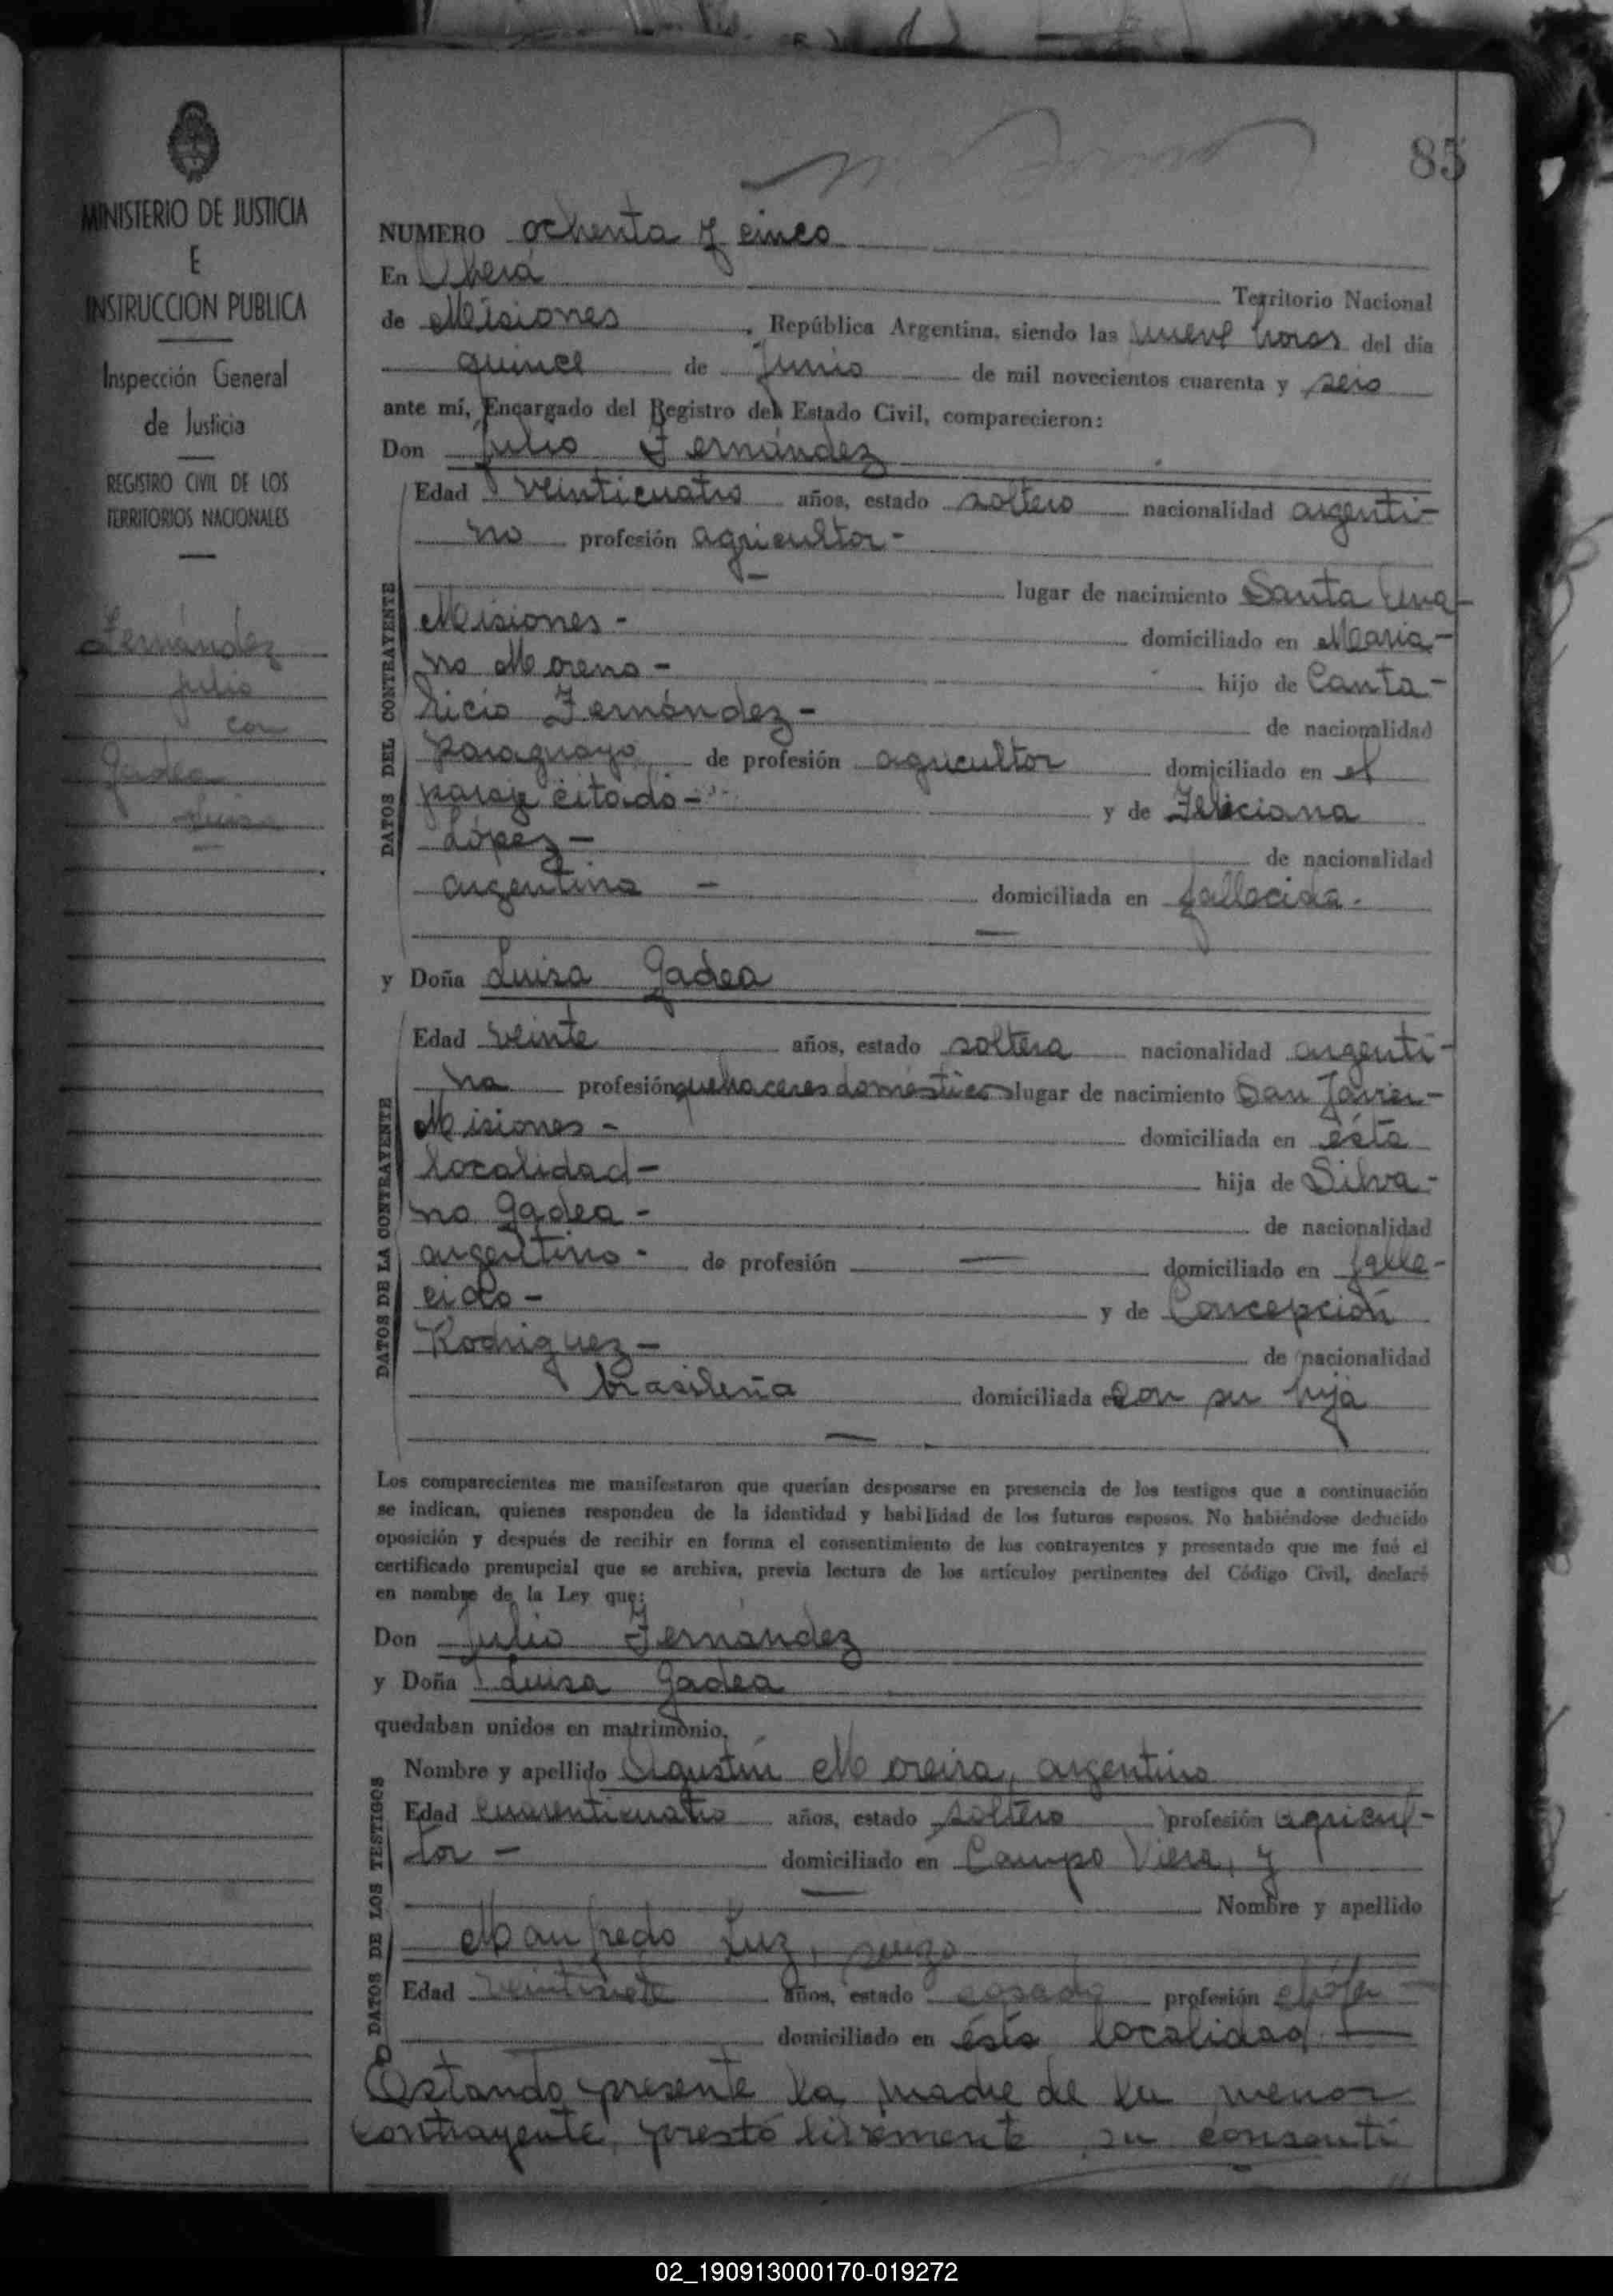 85
MINISTERIO DE JUSTICIA
E
INSTRUCCION PUBLICA
Inspección General
de Justicia
REGISTRO CIVIL DE LOS
TERRITORIOS NACIONALES
Fernández
Julio
con
Gadea
Luisa
NUMERO ochenta y cinco
En Oberá Territorio Nacional
de Misiones, República Argentina, siendo las nueve horas del día
quince de junio de mil novecientos cuarenta y seis
ante mí, Encargado del Registro del Estado Civil, comparecieron:
Don Julio Fernández
DATOS DEL CONTRAYENTE
Edad veinticuatro años, estado soltero nacionalidad argenti-
no profesión agricultor -
lugar de nacimiento Santa Ana
Misiones - domiciliado en Maria-
no Moreno - hijo de Canta-
licio Fernández - de nacionalidad
paraguayo de profesión agricultor domiciliado en el
paraje citado - y de Feliciana
López - de nacionalidad
argentina - domiciliada en fallecida.
y Doña Luisa Gadea
DATOS DE LA CONTRAYENTE
Edad veinte años, estado soltera nacionalidad argenti-
na profesión quehaceres domésticos lugar de nacimiento San Javier-
Misiones - domiciliada en ésta
localidad - hija de Silva-
no Gadea - de nacionalidad
argentino - de profesión — domiciliado en falle-
cido - y de Concepción
Rodriguez - de nacionalidad
brasileña domiciliada en con su hija
Los comparecientes me manifestaron que querían desposarse en presencia de los testigos que a continuación
se indican, quienes responden de la identidad y habilidad de los futuros esposos. No habiéndose deducido
oposición y después de recibir en forma el consentimiento de los contrayentes y presentado que me fué el
certificado prenupcial que se archiva, previa lectura de los artículos pertinentes del Código Civil, declaré
en nombre de la Ley que:
Don Julio Fernández
y Doña Luisa Gadea
quedaban unidos en matrimonio.
DATOS DE LOS TESTIGOS
Nombre y apellido Agustín Moreira, argentino
Edad cuarenticuatro años, estado soltero profesión agricul-
tor - domiciliado en Campo Viera, y
Nombre y apellido
Manfredo Luz, suizo
Edad veintisiete años, estado casado profesión chófer
domiciliado en ésta localidad
Estando presente la madre de la menor
contrayente, prestó libremente su consenti
02_190913000170-019272